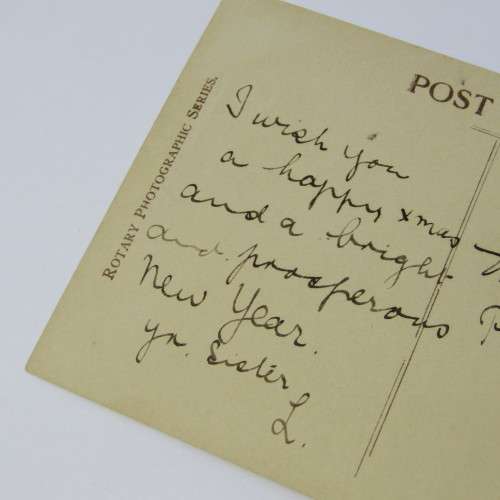 POST
ROTARY PHOTOGRAPHIC SERIES.
I wish you
a happy xmas
and a bright
and prosperous
New Year.
yr. Sister
L.